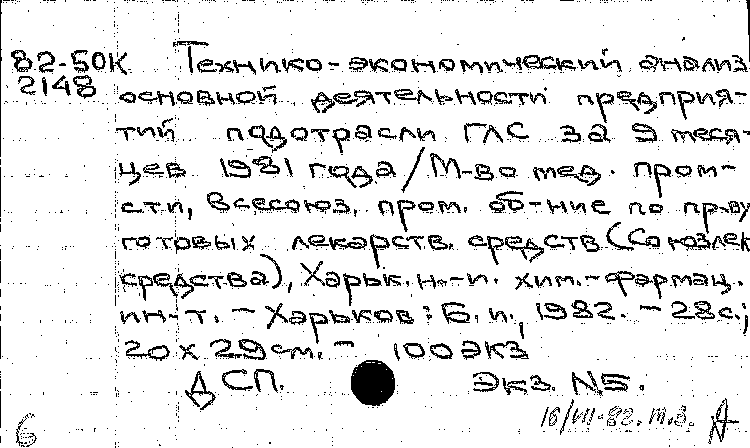 82-50К Технико-экономический анализ
2148 основной деятельности предприя-
тий подотрасли ГЛС за 9 меся-
цев 1981 года/М-во мед. пром-
сти, Всесоюз. пром. об-ние по пр-ву
готовых лекарств. средств (Союзлек
средства), Харьк. н.-и. хим.-фармац.
ин-т. - Харьков: Б.и., 1982. - 28с.;
20 х 29 см. - 100 экз
ДСП. Экз. №5.
16/VII-82. т.з.
6